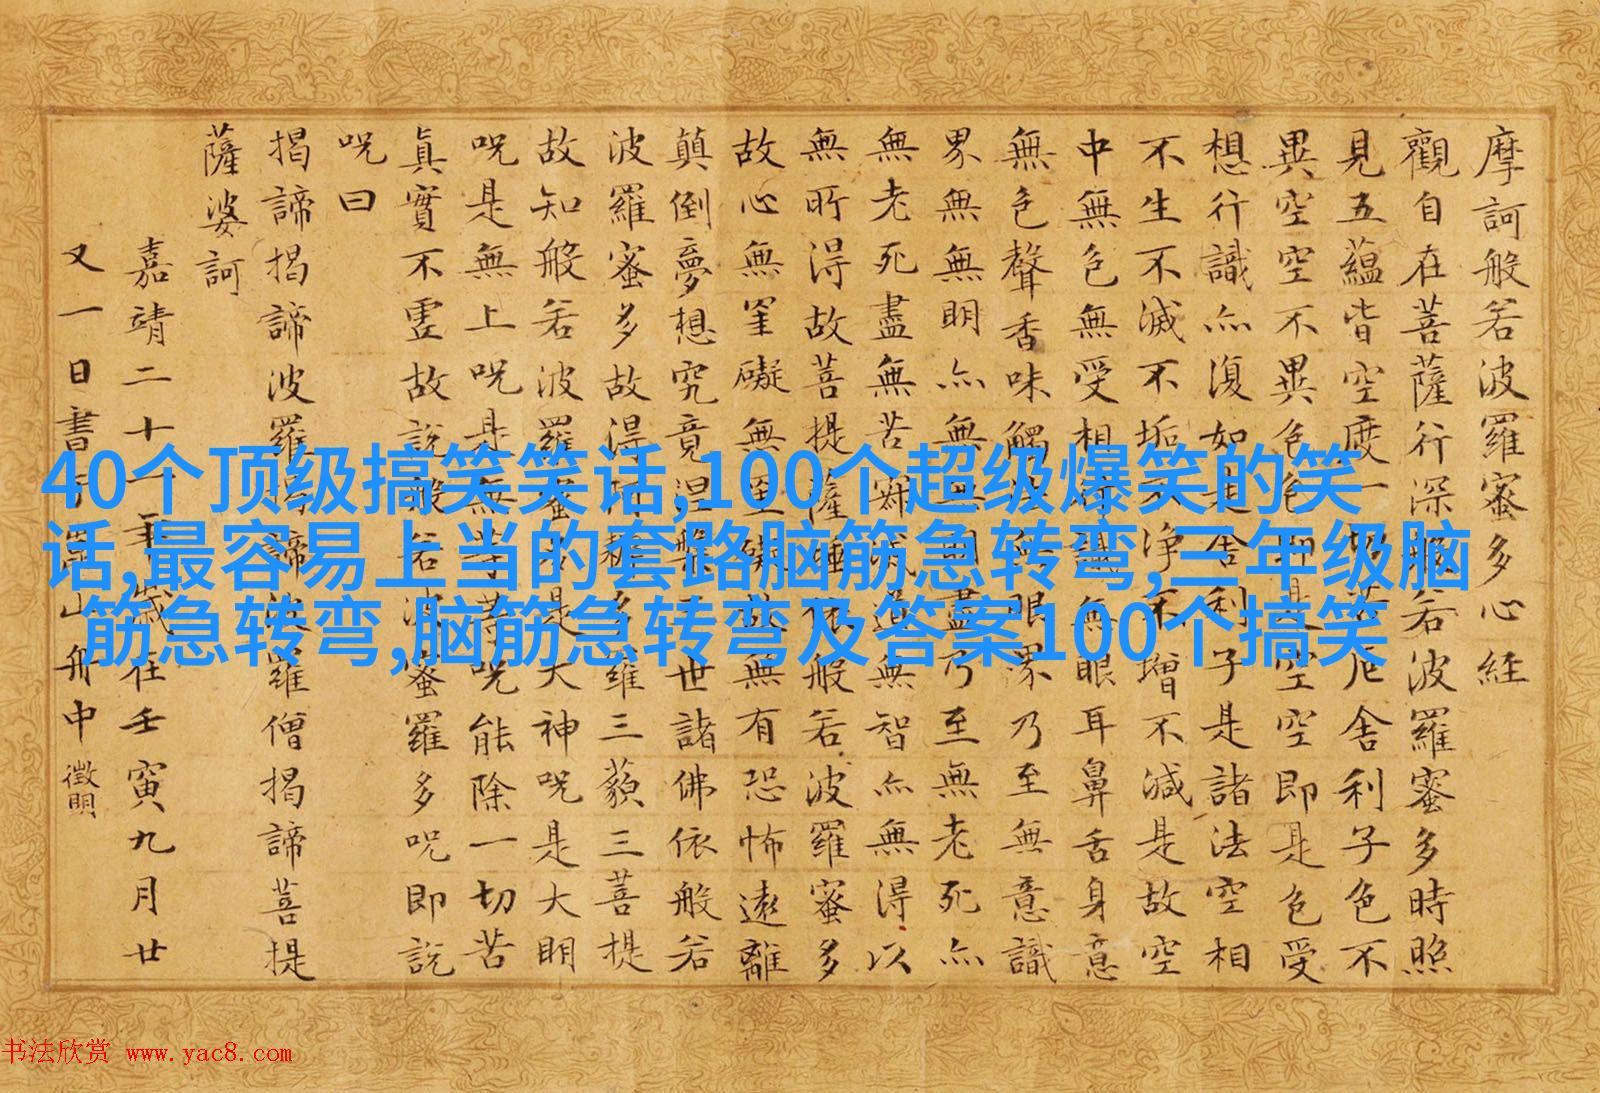 摩訶般若波羅蜜多心経
觀自在菩薩行深般若波羅蜜多時照
見五蘊皆空度一切苦厄舍利子色不
異空空不異色色即是空空即是色受
想行識亦復如是舍利子是諸法空相
不生不滅不垢不淨不增不減是故空
中無色無受相行識無眼耳鼻舌身意
無色聲香味觸法無眼界乃至無意識
界無無明亦無無明盡乃至無老死亦
無老死盡無苦滅道無智亦無得以
無所得故菩提薩埵依般若波羅蜜多
故心無罣礙無罣礙故無有恐怖遠離
顛倒夢想究竟涅槃三世諸佛依般若
波羅蜜多故得阿耨多羅三藐三菩提
故知般若波羅蜜多是大神咒是大明
咒是無上咒是無等等咒能除一切苦
真實不虛故說般若波蜜羅多咒即說
咒曰
揭諦揭諦波羅揭諦波羅僧揭諦菩提
薩婆訶
嘉靖二十一年歲在壬寅九月廿
又一日書山舟中 徵明
40个顶级搞笑笑话,100个超级爆笑的笑
话,最容易上当的套路脑筋急转弯,三年级脑
筋急转弯,脑筋急转弯及答案100个搞笑
书法欣赏 www.yac8.com